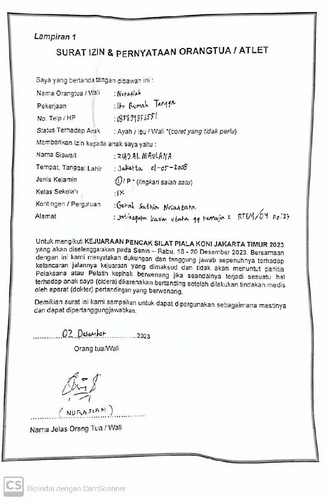 Lampiran 1
SURAT IZIN & PERNYATAAN ORANGTUA / ATLET
Saya yang bertanda tangan dibawah ini :
Nama Orangtua / Wali : Nurasiah
Pekerjaan : Ibu Rumah Tangga
No. Telp / HP :
Status Terhadap Anak : Ayah / Ibu / Wali *(coret yang tidak perlu)
Memberikan Izin kepada anak saya yaitu :
Nama Siswa/i : RIJDAL MAULANA
Tempat, Tanggal Lahir : Jakarta 01-05-2008
Jenis Kelamin : L/P (lingkari salah satu)
Kelas Sekolah : IX
Kontingen / Perguruan : Gerak Saktia Nusantara
Alamat : Jatinegara kaum
Untuk mengikuti KEJUARAAN PENCAK SILAT PIALA KONI JAKARTA TIMUR 2023
yang akan diselenggarakan pada Senin - Rabu, 18 - 20 Desember 2023. Bersamaan
dengan ini kami menyatakan dukungan dan tanggung jawab sepenuhnya terhadap
kelancaran jalannya kejuaraan yang dimaksud dan tidak akan menuntut panitia
Pelaksana atau Pelatih kepihak berwenang jika seandainya terjadi sesuatu hal
terhadap anak saya (cidera) dikarenakan bertanding setelah dilakukan tindakan medis
oleh aparat (dokter) pertandingan yang berwenang.
Demikian surat ini kami sampaikan untuk dapat dipergunakan sebagaimana mestinya
dan dapat dipertanggungjawabkan.
02 Desember 2023
Orang tua/Wali
(NURASIAH)
Nama Jelas Orang Tua / Wali
CS Dipindai dengan CamScanner